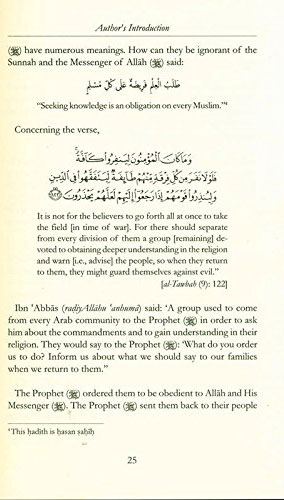 Author's Introduction
(ﷺ) have numerous meanings. How can they be ignorant of the
Sunnah and the Messenger of Allāh (ﷺ) said:
طَلَبُ الْعِلْمِ فَرِيضَةٌ عَلَى كُلِّ مُسْلِمٍ
“Seeking knowledge is an obligation on every Muslim.”⁴
Concerning the verse,
وَمَا كَانَ ٱلْمُؤْمِنُونَ لِيَنفِرُوا۟ كَآفَّةً ۚ
فَلَوْلَا نَفَرَ مِن كُلِّ فِرْقَةٍ مِّنْهُمْ طَآئِفَةٌ لِّيَتَفَقَّهُوا۟ فِى ٱلدِّينِ
وَلِيُنذِرُوا۟ قَوْمَهُمْ إِذَا رَجَعُوٓا۟ إِلَيْهِمْ لَعَلَّهُمْ يَحْذَرُونَ ﴿١٢٢﴾
It is not for the believers to go forth all at once to take
the field [in time of war]. For there should separate
from every division of them a group [remaining] de-
voted to obtaining deeper understanding in the religion
and warn [i.e., advise] the people, so when they return
to them, they might guard themselves against evil.”
[al-Tawbah (9): 122]
Ibn ʿAbbās (raḍyAllāhu ʿanhumā) said: ‘A group used to come
from every Arab community to the Prophet (ﷺ) in order to ask
him about the commandments and to gain understanding in their
religion. They would say to the Prophet (ﷺ): ‘What do you order
us to do? Inform us about what we should say to our families
when we return to them.”
The Prophet (ﷺ) ordered them to be obedient to Allāh and His
Messenger (ﷺ). The Prophet (ﷺ) sent them back to their people
⁴ This ḥadīth is ḥasan ṣaḥīḥ
25